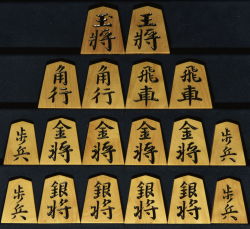 玉將 王將
角行 角行 飛車 飛車
歩兵 金将 金将 金将 金将 歩兵
歩兵 銀将 銀将 銀将 銀将 歩兵